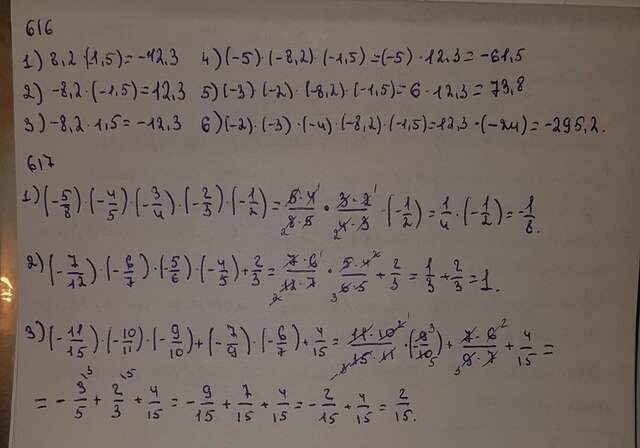 616
1) 8,2·(-1,5)=-12,3 4) (-5)·(-8,2)·(-1,5)=(-5)·12,3=-61,5
2) -8,2·(-1,5)=12,3 5) (-3)·(-2)·(-8,2)·(-1,5)=6·12,3=73,8
3) -8,2·1,5=-12,3 6) (-2)·(-3)·(-4)·(-8,2)·(-1,5)=12,3·(-24)=-295,2.
617
1) (-5/8)·(-4/5)·(-3/4)·(-2/3)·(-1/2)=5·4/8·5·3·2/4·3·(-1/2)=1/4·(-1/2)=-1/8.
2) (-7/12)·(-6/7)·(-5/6)·(-4/5)+2/3=7·6/12·7·5·4/6·5+2/3=1/3+2/3=1.
3) (-11/15)·(-10/11)·(-9/10)+(-7/9)·(-6/7)+4/15=11·10/15·11·(-9/10)+7·6/9·7+4/15=
=-3/5+2/3+4/15=-9/15+7/15+4/15=-2/15+4/15=2/15.